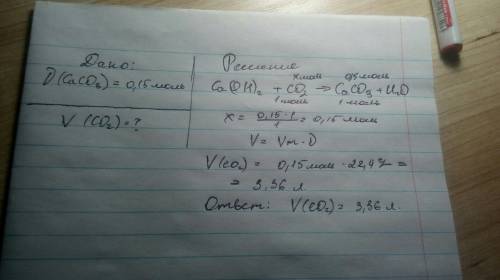 Дано:
ν(CaCO₃) = 0,15 моль
V (CO₂) = ?
Решение
x моль 0,15 моль
Ca(OH)₂ + CO₂ → CaCO₃ + H₂O
1 моль 1 моль
x = 0,15 · 1 / 1 = 0,15 моль
V = Vm · ν
V(CO₂) = 0,15 моль · 22,4 =
= 3,36 л
Ответ: V(CO₂) = 3,36 л.